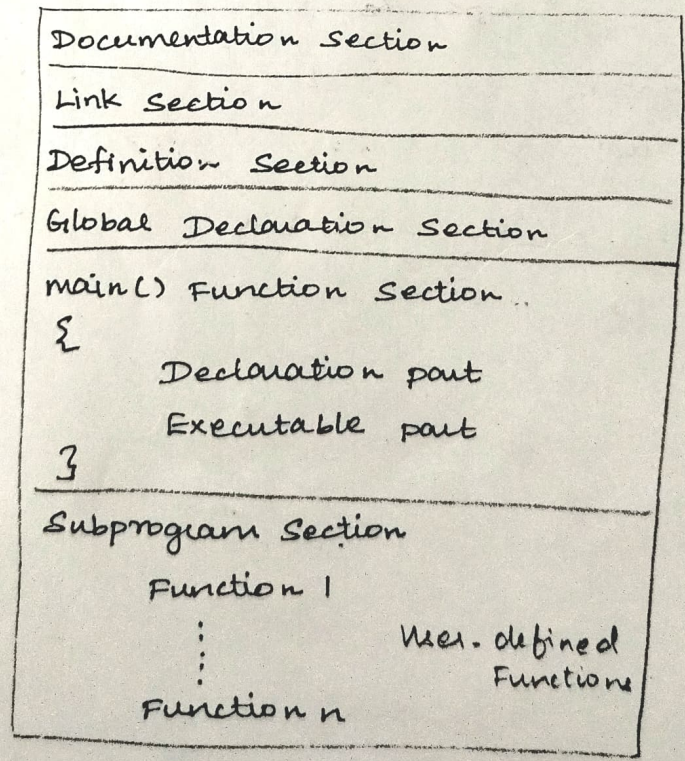 Documentation Section
Link Section
Definition Section
Global Declaration Section
main() Function Section
{
Declaration part
Executable part
}
Subprogram Section
Function 1
User-defined
Functions
Function n